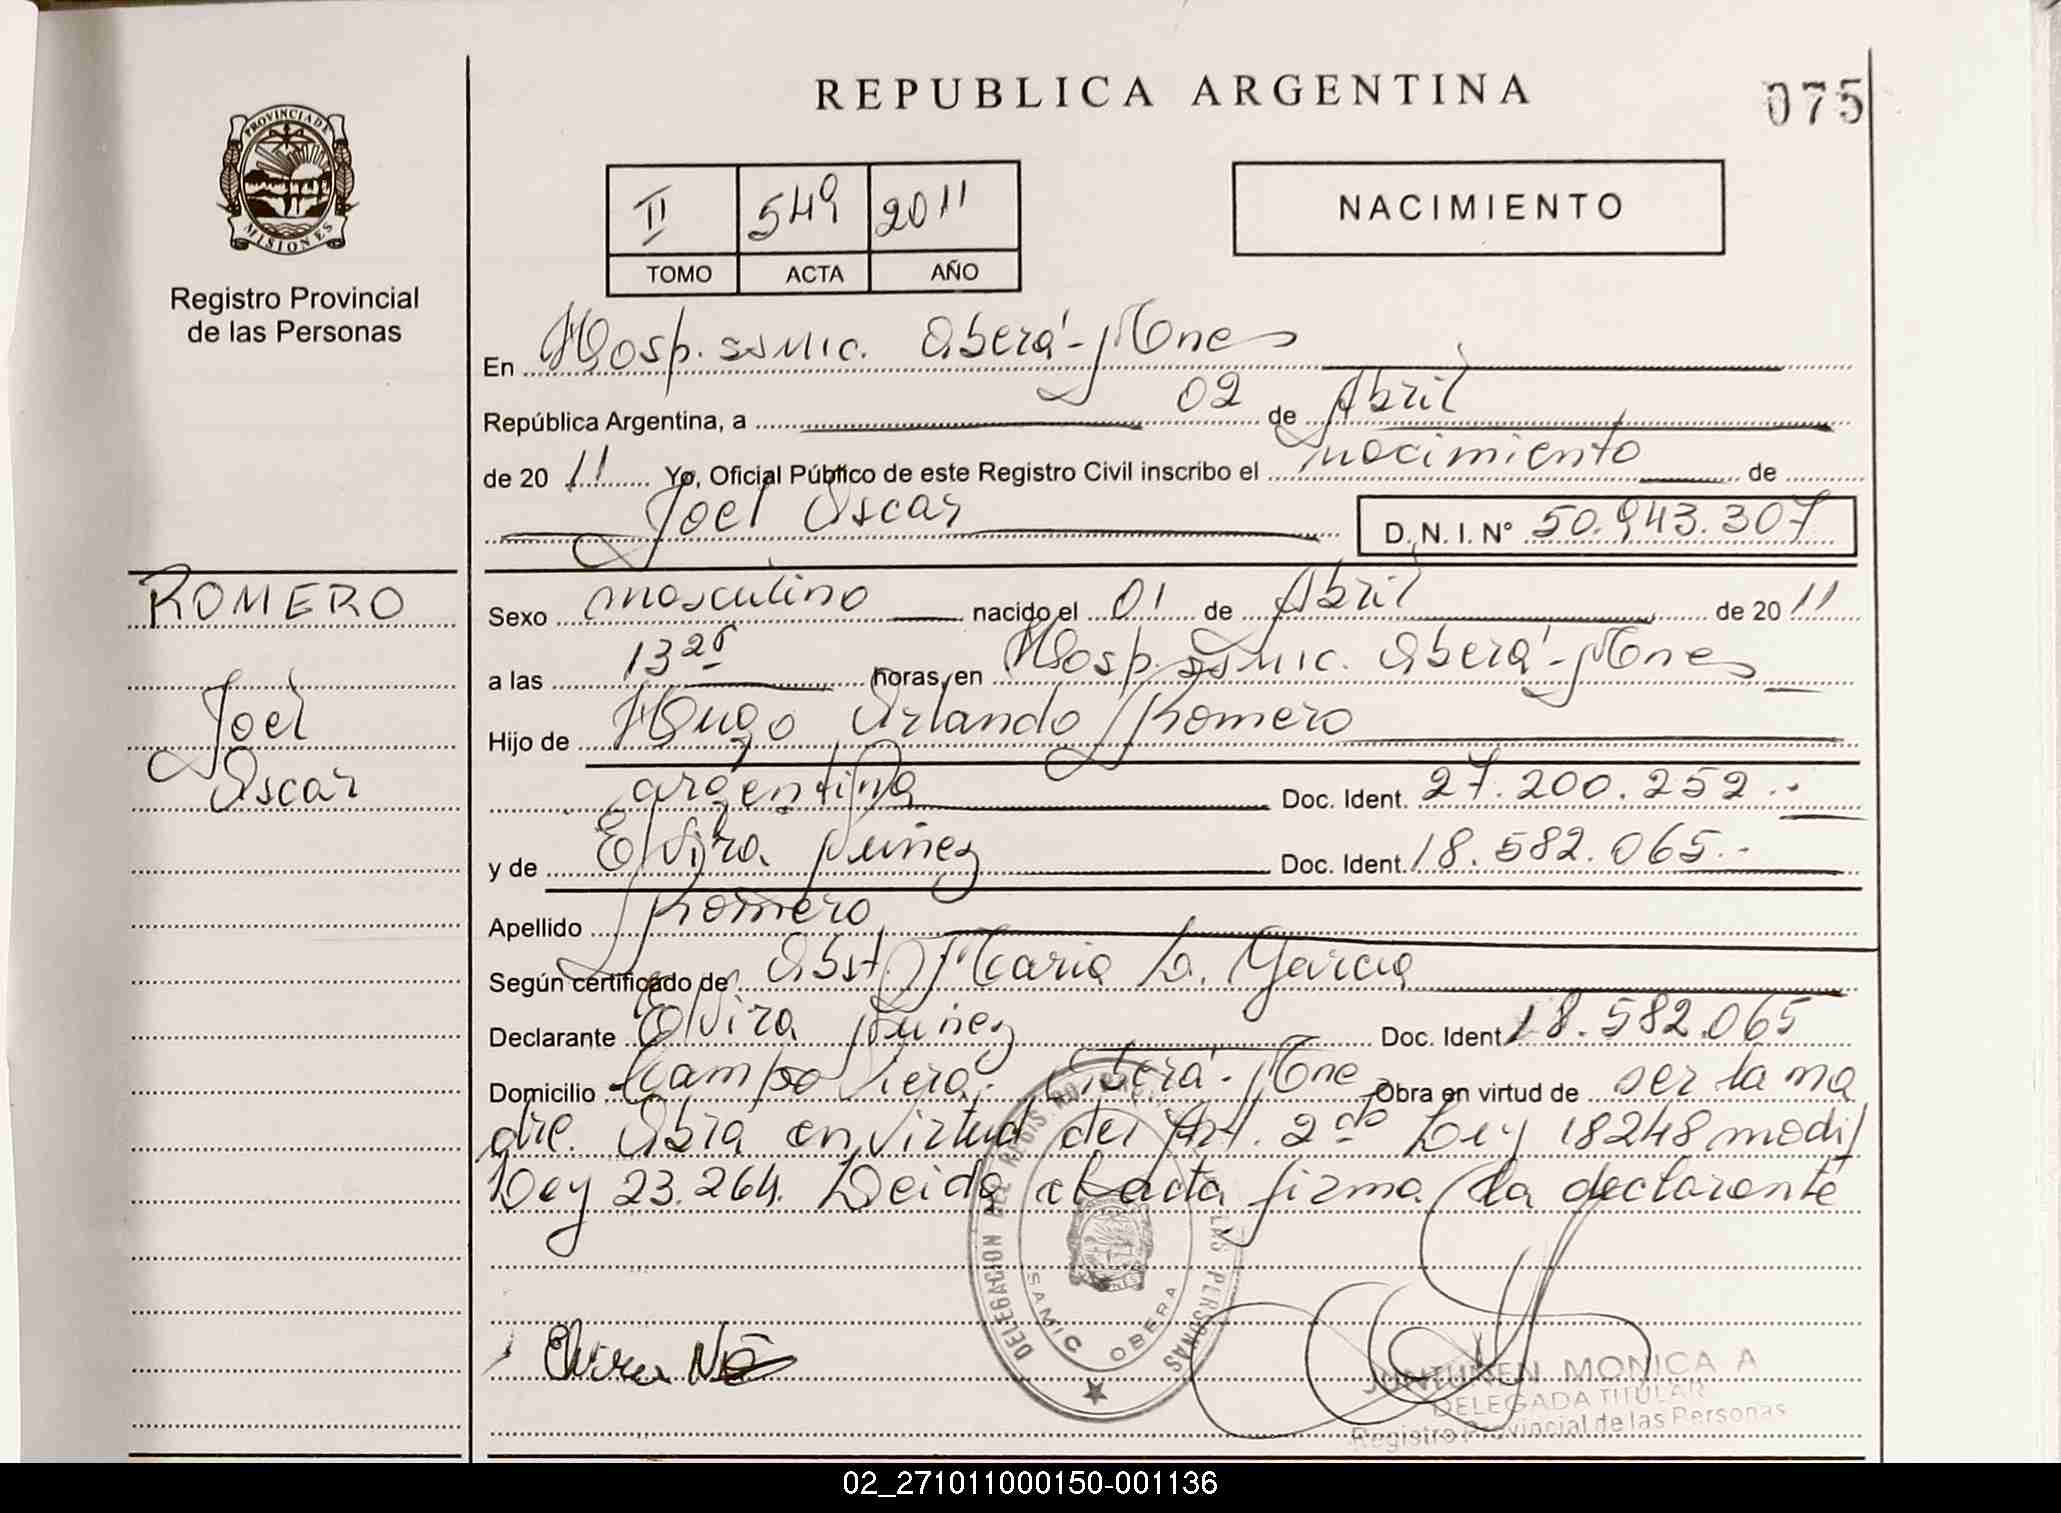 REPUBLICA ARGENTINA
075
PROVINCIA DE
MISIONES
Registro Provincial
de las Personas
II 549 2011
TOMO ACTA AÑO
NACIMIENTO
En Hosp. SAMIC. Oberá - Mnes
República Argentina, a 02 de Abril
de 20 11 Yo, Oficial Público de este Registro Civil inscribo el nacimiento de
Joel Oscar D. N. I. Nº 50.943.307
ROMERO
Joel
Oscar
Sexo masculino nacido el 01 de Abril de 20 11
a las 13 25 horas, en Hosp. SAMIC. Oberá - Mnes
Hijo de Hugo Orlando Romero
argentina Doc. Ident. 27.200.252.-
y de Elvira Nuñez Doc. Ident. 18.582.065.-
Apellido Romero
Según certificado de Obst. Maria L. Garcia
Declarante Elvira Nuñez Doc. Ident. 18.582.065
Domicilio Campo Viera, Oberá - Mne Obra en virtud de ser la ma
dre. Obra en virtud del Art. 2do Ley 18248 modif
Ley 23.264. Leida el acta firma la declarante
DELEGACION DEL REGISTRO LAS PERSONAS
SAMIC OBERA
Elvira
JUNTUNEN MONICA A
DELEGADA TITULAR
Registro Provincial de las Personas
02_271011000150-001136